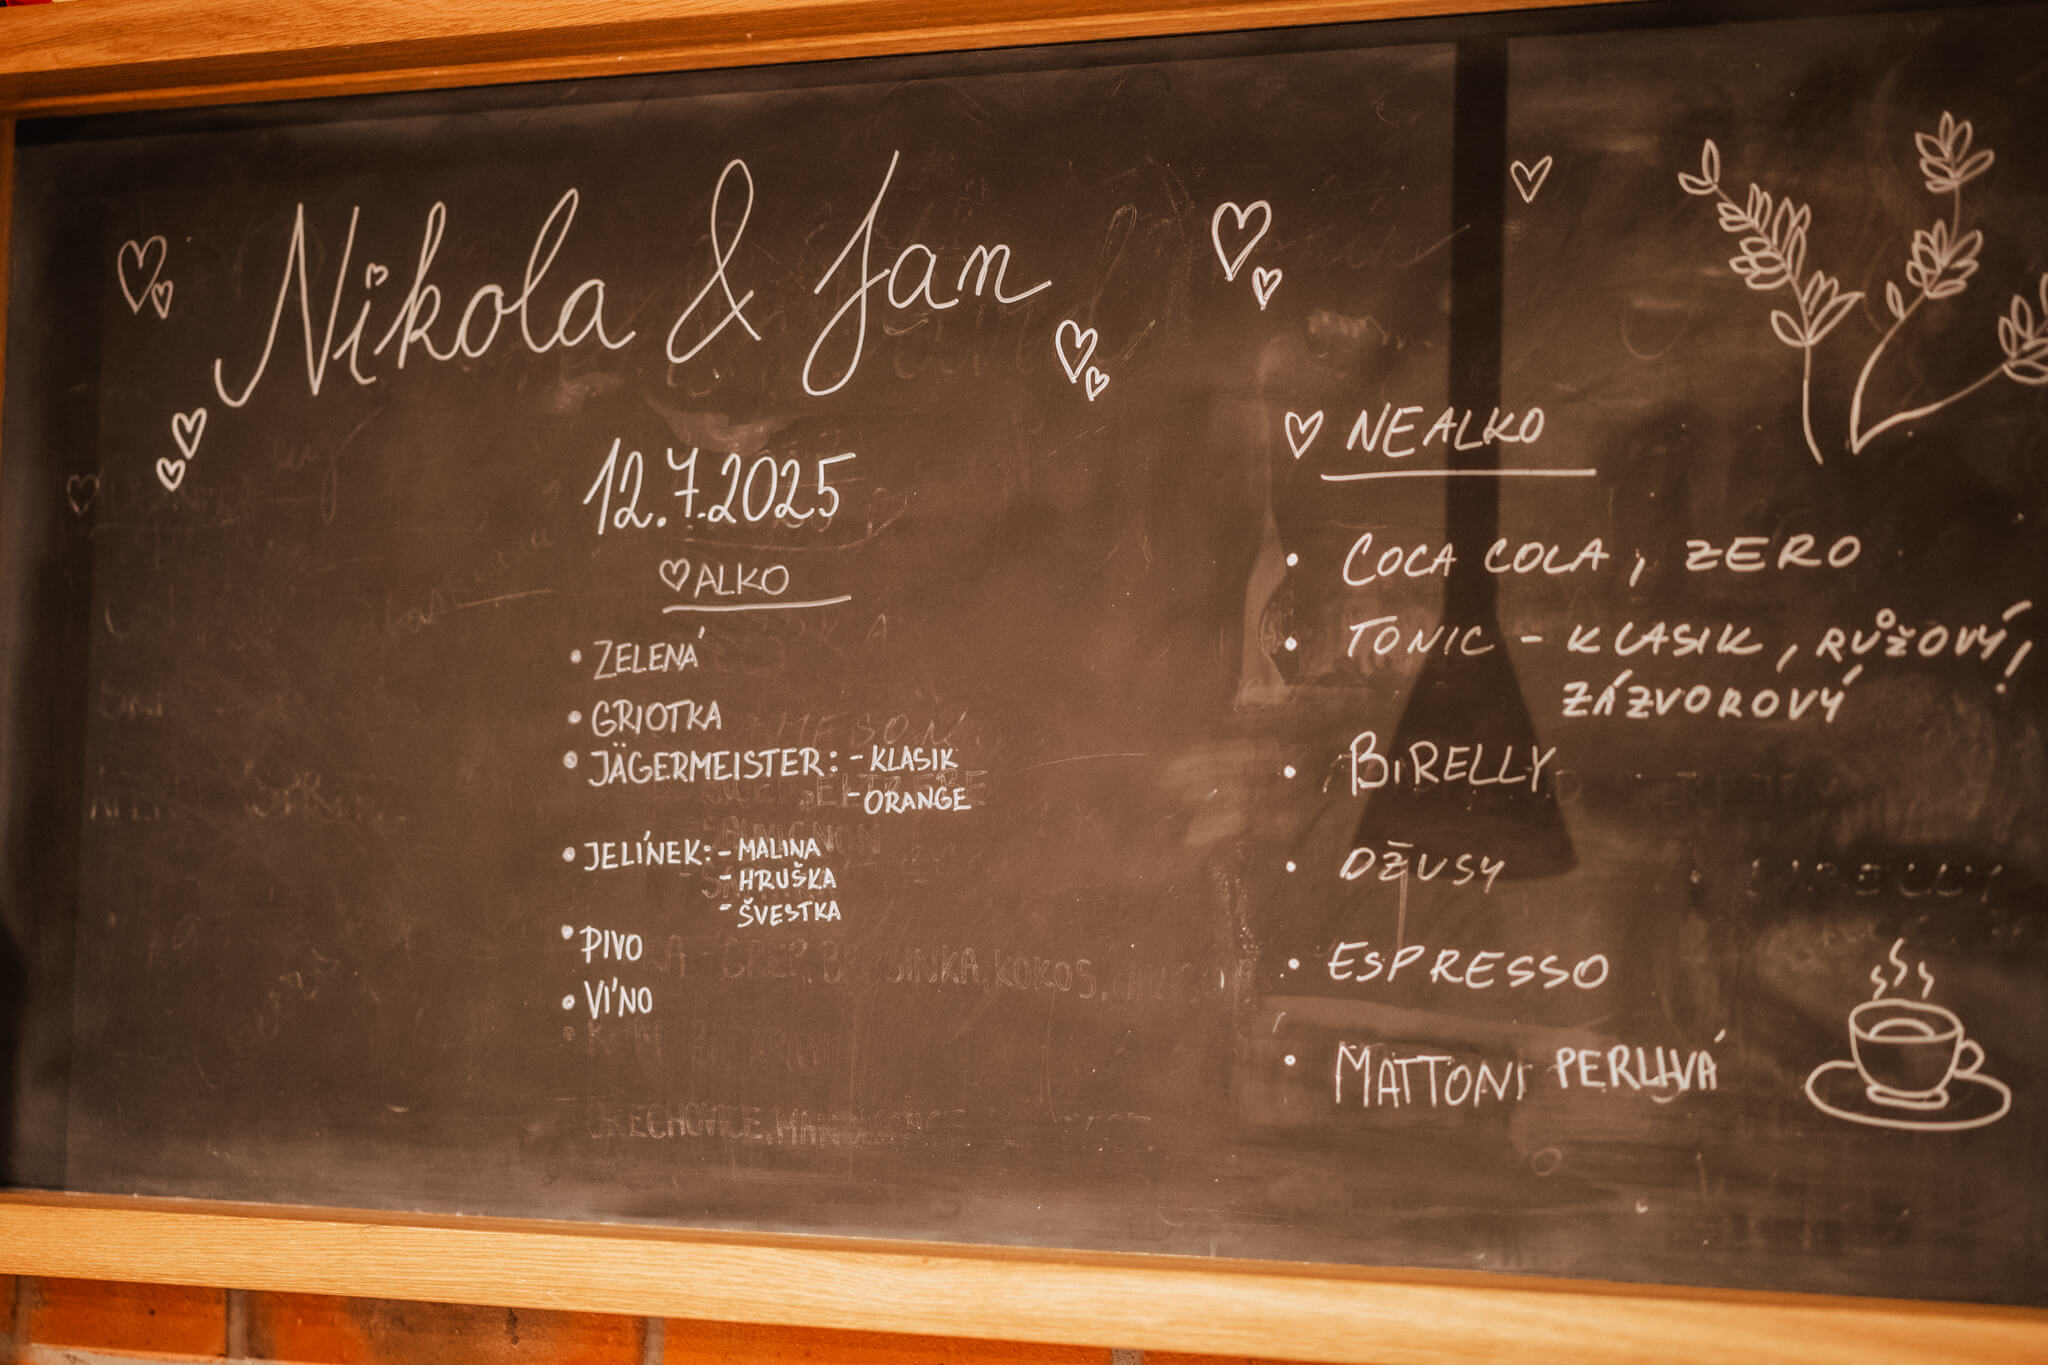 Nikola & Jan
12.7.2025
ALKO
• ZELENÁ
• GRIOTKA
• JÄGERMEISTER: - KLASIK
- ORANGE
• JELÍNEK: - MALINA
- HRUŠKA
- ŠVESTKA
• PIVO
• VÍNO
NEALKO
• COCA COLA, ZERO
• TONIC - KLASIK, RŮŽOVÝ,
ZÁZVOROVÝ
• BIRELLY
• DŽUSY
• ESPRESSO
• MATTONI PERLIVÁ